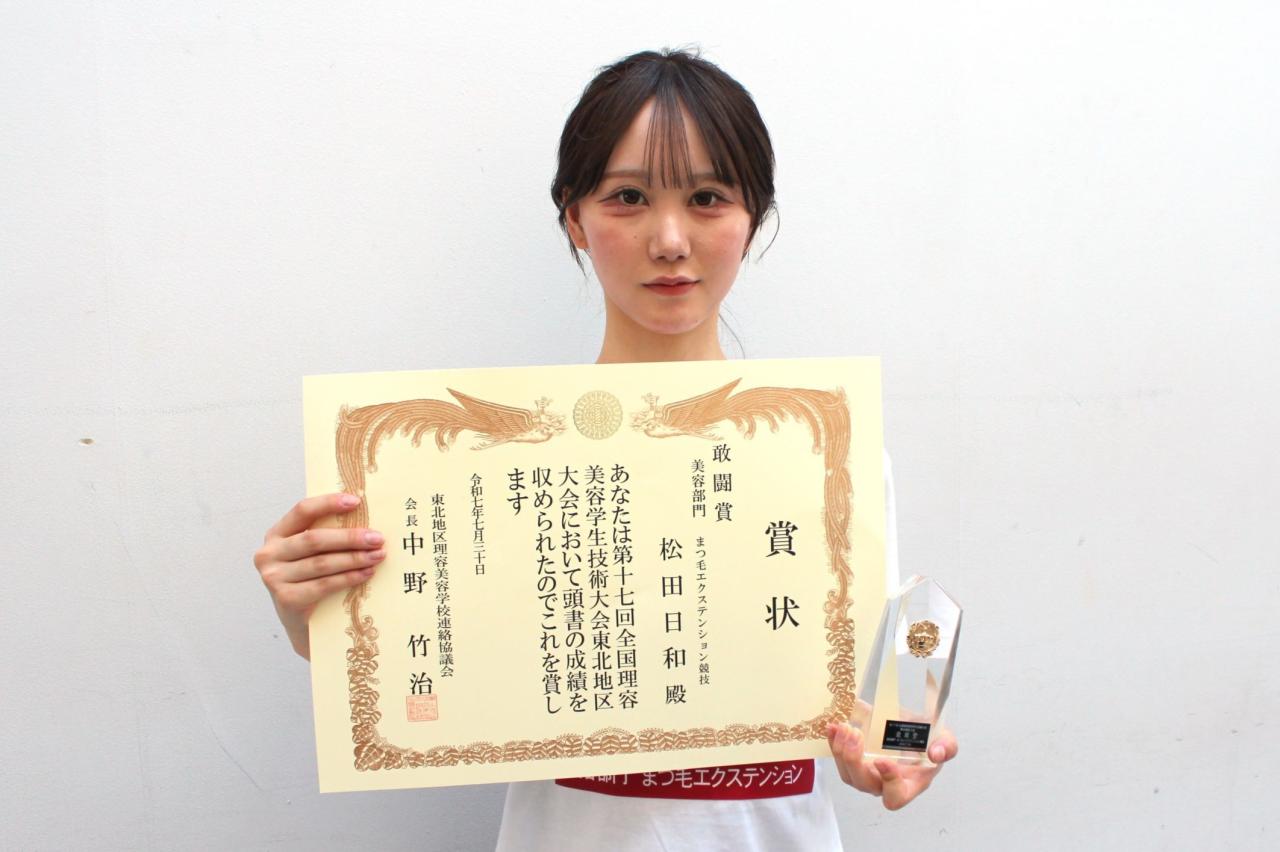 賞状
敢闘賞
美容部門　まつ毛エクステンション競技
松田日和殿
あなたは第十七回全国理容
美容学生技術大会東北地区
大会において頭書の成績を
収められたのでこれを賞し
ます
令和七年七月三十日
東北地区理容美容学校連絡協議会
会長 中野 竹治
敢闘賞
まつ毛エクステンション